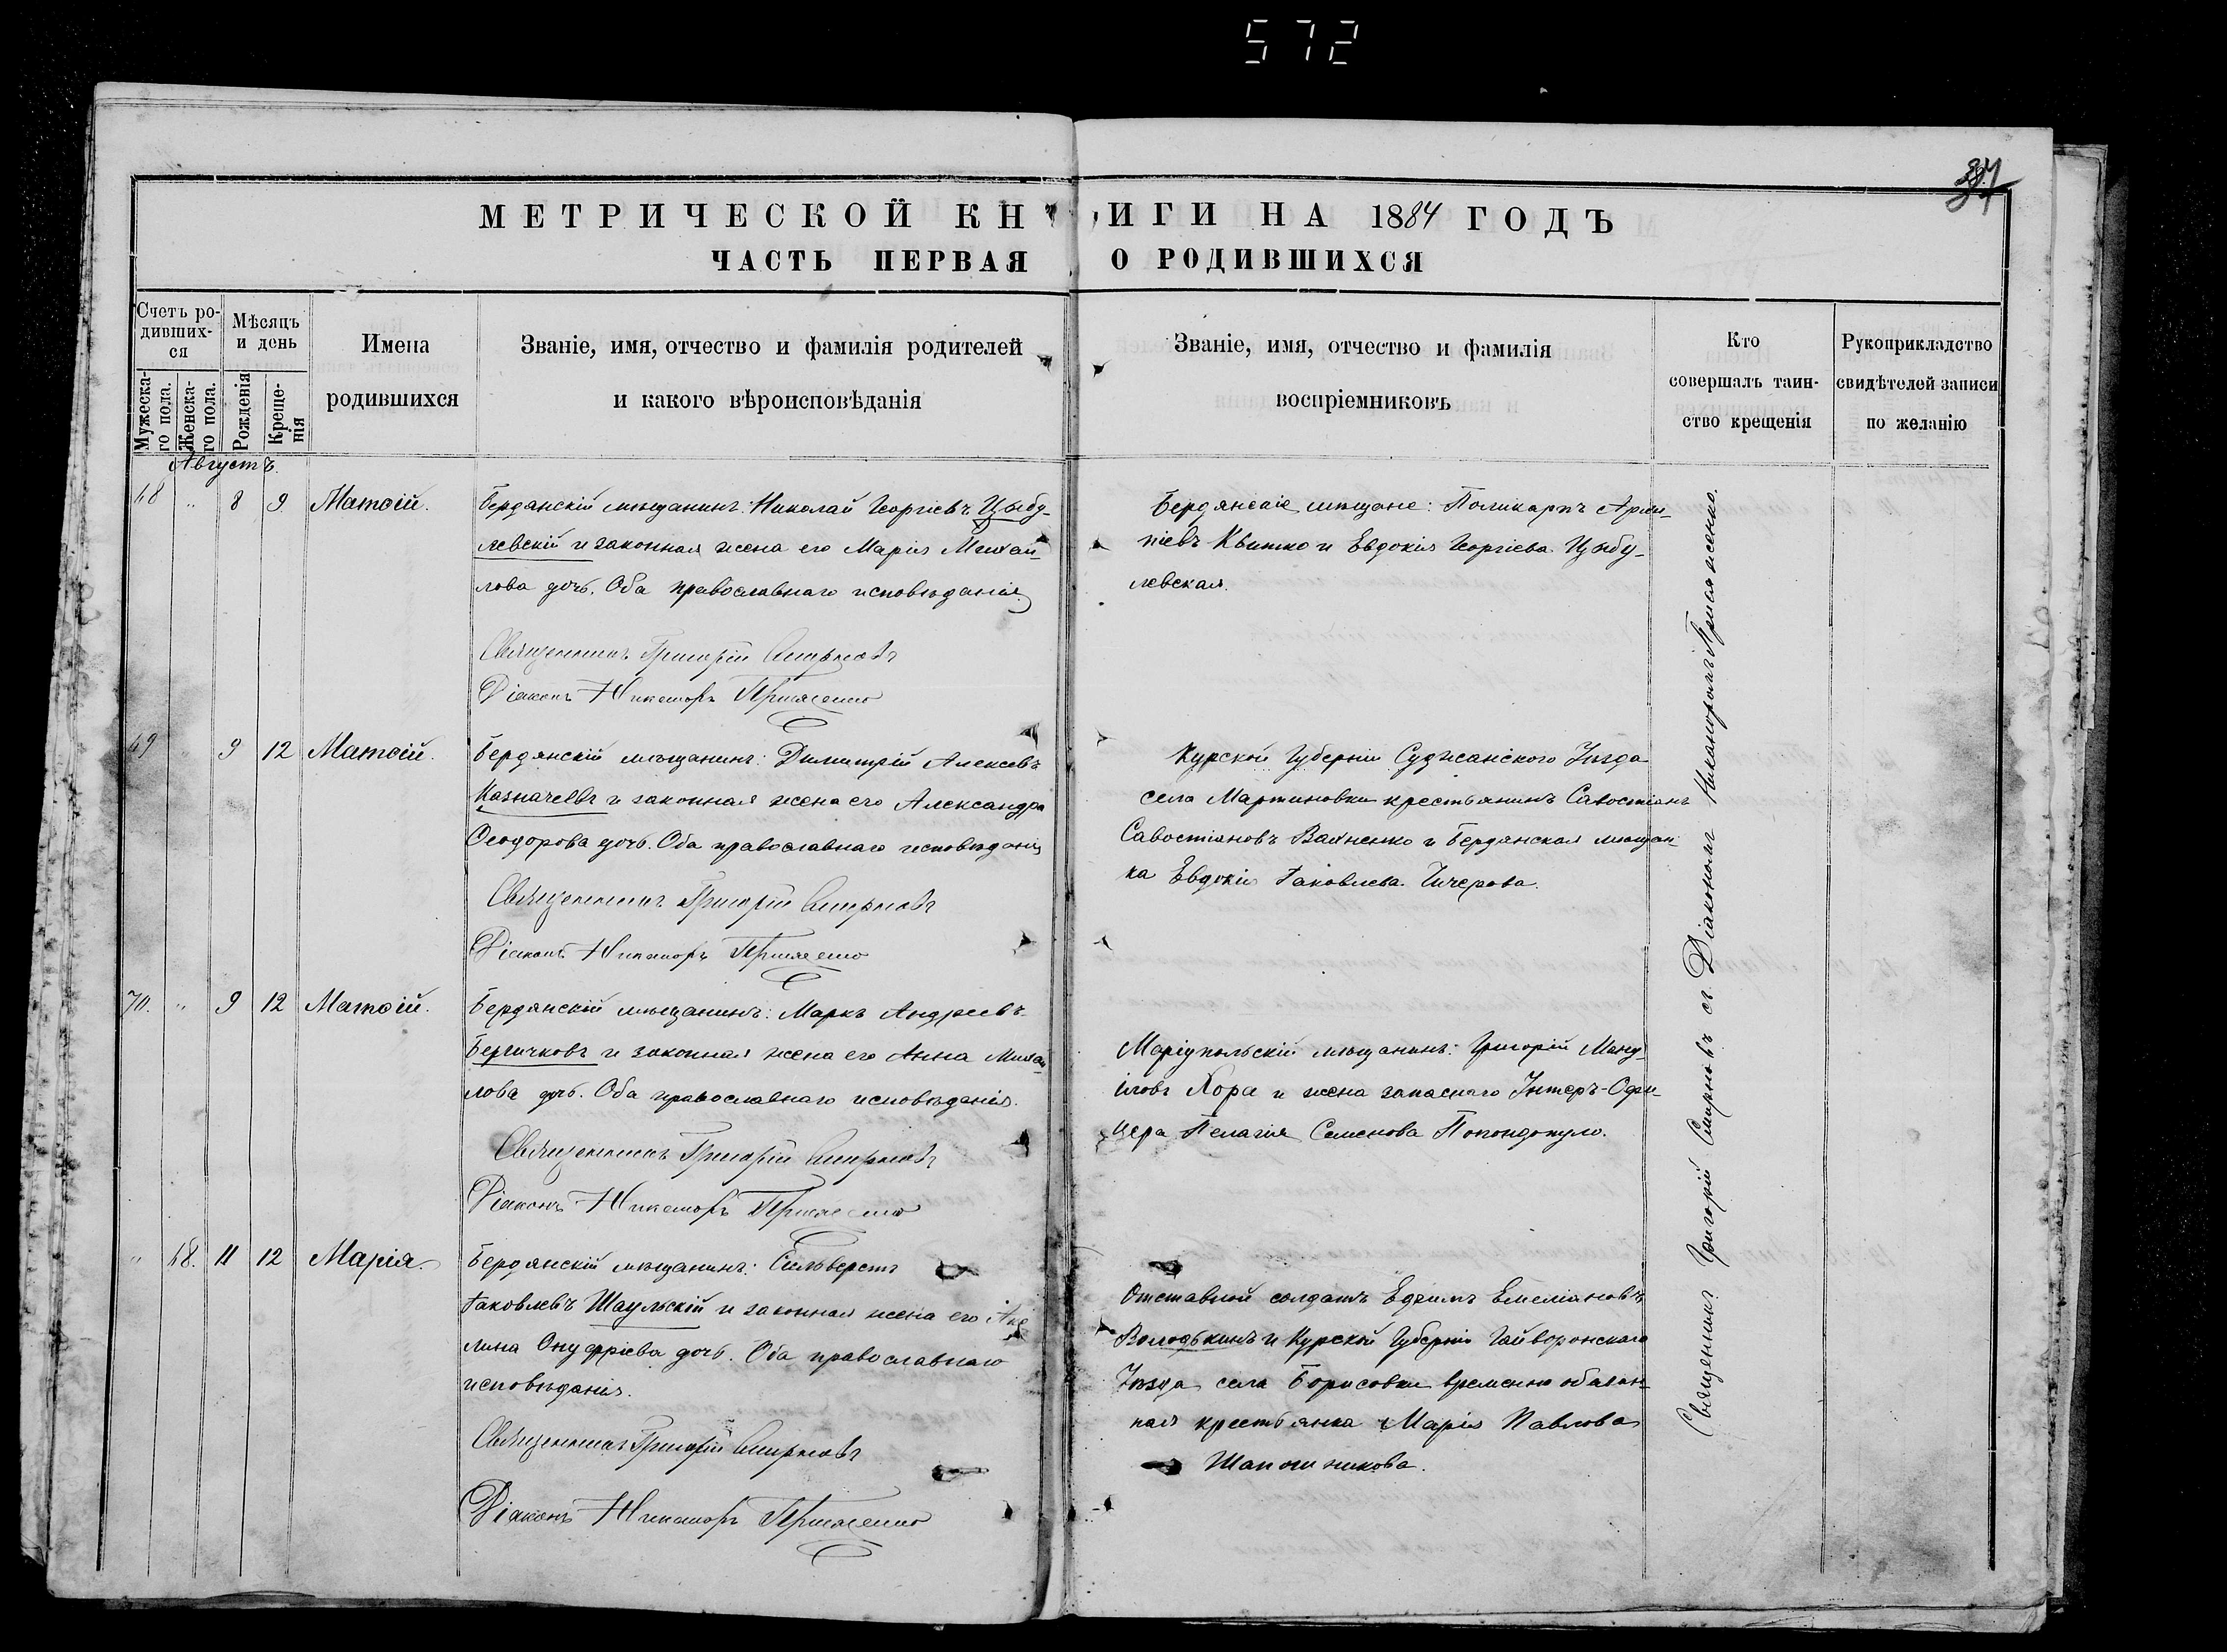 572
37
МЕТРИЧЕСКОЙ КНИГИ НА 1884 ГОДЪ
ЧАСТЬ ПЕРВАЯ О РОДИВШИХСЯ
Счетъ ро-
дивших-
ся
Мужеска-
го пола.
Женска-
го пола.
Мѣсяцъ
и день
Рожденія
Креще-
нія
Имена
родившихся
Званіе, имя, отчество и фамилія родителей
и какого вѣроисповѣданія
Званіе, имя, отчество и фамилія
воспріемниковъ
Кто
совершалъ таин-
ство крещенія
Рукоприкладство
свидѣтелей записи
по желанію
Августъ.
68 " 8 9 Матѳій.
Бердянскій мѣщанинъ: Николай Георгіевъ Цыбу-
левскій и законная жена его Марія Михаи-
лова дочь. Оба православнаго исповѣданія.
Священникъ Григорій Смирновъ
Діаконъ Никаноръ
Бердянскіе мѣщане: Поликарпъ
Квитко и Евдокія Георгіева Цыбу-
левская.
69 " 9 12 Матѳій.
Бердянскій мѣщанинъ: Димитрій Алексевъ
Казначевъ и законная жена его Александра
Ѳеодорова дочь. Оба православнаго исповѣданія
Священникъ Григорій Смирновъ
Діаконъ Никаноръ
Курской Губерніи Суджанскаго Уѣзда
села Мартиновки крестьянинъ Савостіанъ
Савостіановъ и Бердянская мѣщан-
ка Евдокія Іаковлева Чичерова.
70. " 9 12 Матѳій.
Бердянскій мѣщанинъ: Маркъ Андреевъ
и законная жена его Анна Михаи-
лова дочь. Оба православнаго исповѣданія.
Священникъ Григорій Смирновъ
Діаконъ Никаноръ
Маріупольскій мѣщанинъ: Григорій Ману-
иловъ Хора и жена запаснаго Унтеръ-Офи-
цера Пелагія Семенова
" 68. 11 12 Марія.
Бердянскій мѣщанинъ: Сильверстъ
Іаковлевъ Шаульскій и законная жена его Аке-
лина Онуфріева дочь. Оба православнаго
исповѣданія.
Священникъ Григорій Смирновъ
Діаконъ Никаноръ
Отставной солдатъ Ефимъ Емеліановъ
Володькинъ и Курской Губерніи Гайворонскаго
Уѣзда села Борисовки временно обязан-
ная крестьянка Марія Павлова
Шапошникова.
Священникъ Григорій Смирновъ съ Діакономъ Никаноромъ